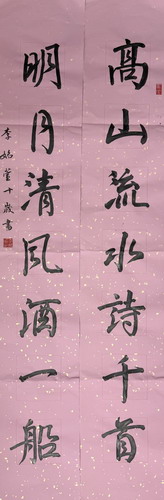 高山流水詩千首
明月清風酒一船
李
十歲書